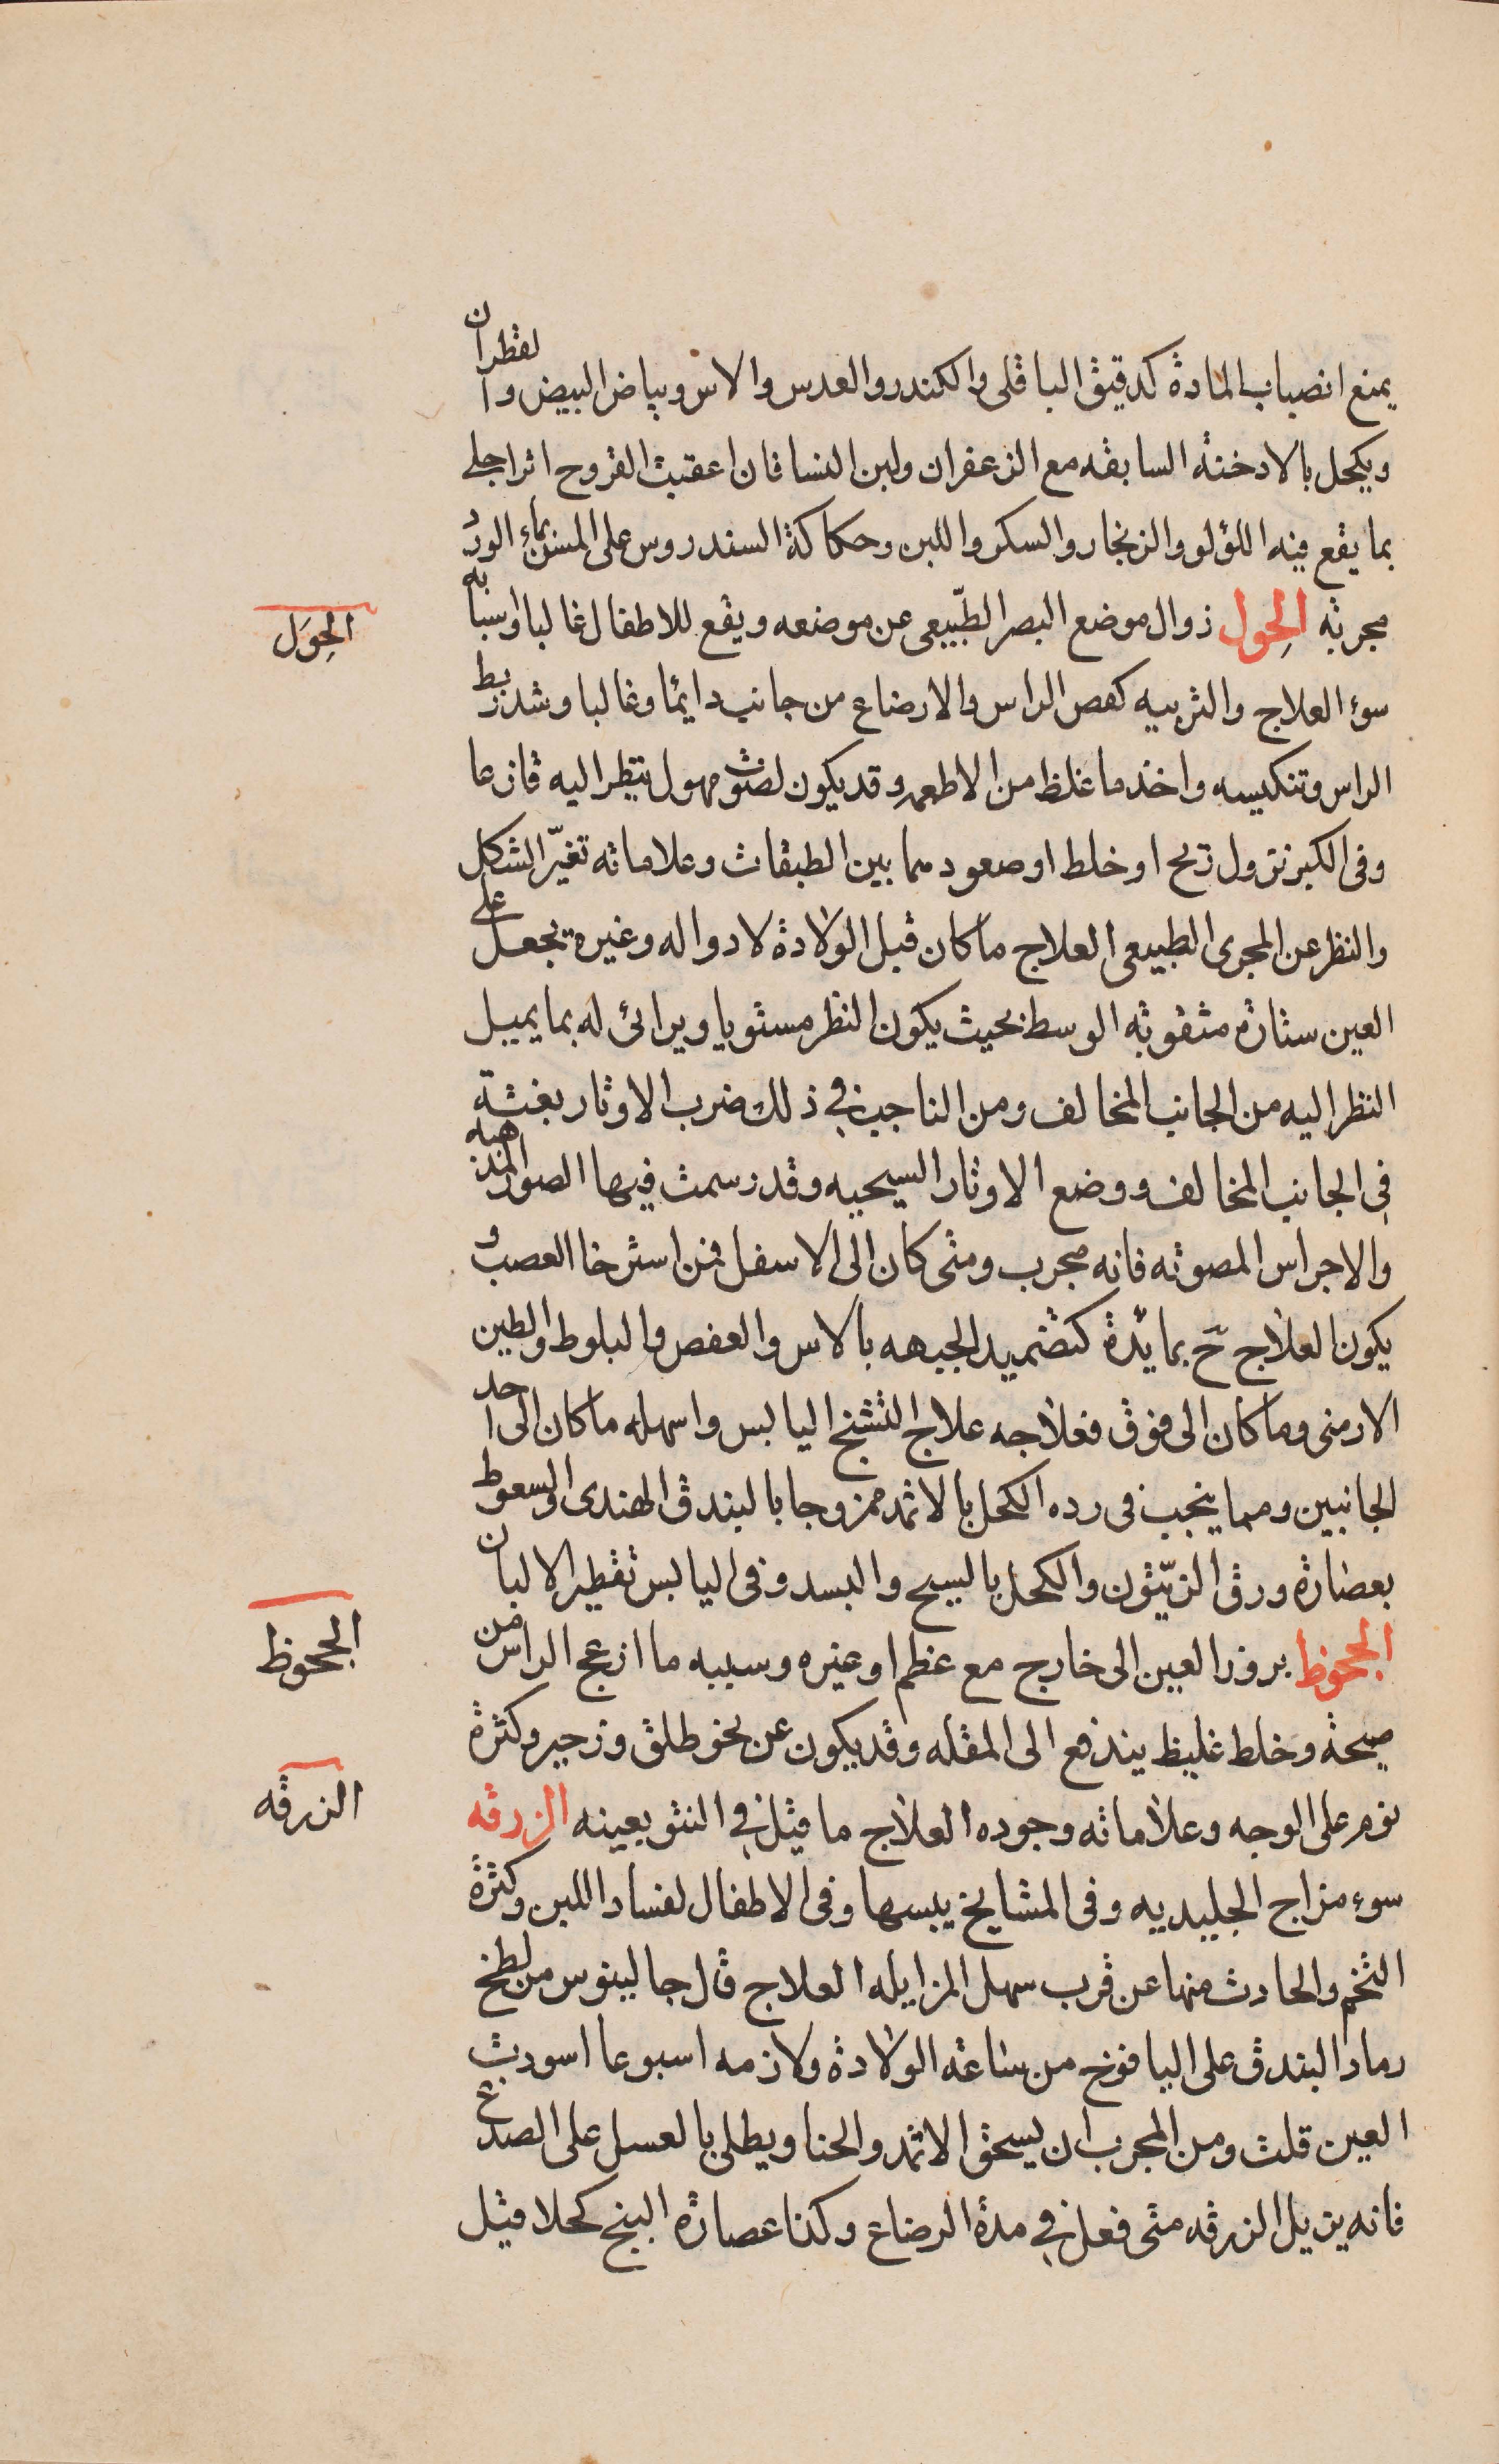 يمنع انصباب المادة كدقيق الباقلى والكندر والعدس والاس وبياض البيض والقطران
ويكحل بالادخنة السابقه مع الزعفران ولبن النسا فان اعقبت القروح اثرا جلى
بما يقع فيه اللؤلو والزنجار والسكر واللبن وحكاكة السندروس على المسن بماء الورد
مجربه الحِول زوال موضع البصر الطبّيعى عن موضعه ويقع للاطفال غالبا واسبابه
سوء العلاج والتربيه كعص الراس والارضاع من جانب دايمًا وغالبا وشد ربط
الراس وتنكيسه واخذ ما غلظ من الاطعمه وقد يكون لصوت مهول ينظر اليه فازعا
وفى الكبر نزول ريح او خلط او صعودهما بين الطبقات وعلاماته تغيّر الشكل
والنظر عن المجرى الطبيعى العلاج ماكان قبل الولادة لا دوا له وغيره يجعل على
العين ستارة مثقوبه الوسط بحيث يكون النظر مستويا ويرائ له بما يميل
النظر اليه من الجانب المخالف ومن الناجب فى ذلك ضرب الاوتار بغتة
فى الجانب المخالف ووضع الاوتار السبجيه وقد رسمت فيها الصور المذهبه
والاجراس المصوته فانه مجرب ومتى كان الى الاسفل فمن استرخا العصب و
يكون العلاج حَ بما يشده كتضميد الجبهه بالاس والعفص والبلوط والطين
الارمنى وماكان الى فوق فعلاجه علاج التشنج اليابس واسهله ماكان الى احد
الجانبين ومما ينجب فى رده الكحل بالاثمد ممزوجا بالبندق الهندى والسعوط
بعصارة ورق الزيّتون والكحل بالسبج والبسد وفى اليابس تقطير الالبان
الجحوظ بروز العين الى خارج مع عظم او غيره وسببه ما ازعج الراس من
صيحة وخلط غليظ يندفع الى المقله وقد يكون عن نحو طلق وزحير وكثرة
نوم على الوجه وعلاماته وجوده العلاج ما قيل فى النتو بعينه الزرقه
سوء مزاج الجليديه وفى المشايخ يبسها وفى الاطفال لفساد اللبن وكثرة
التخم والحادث منها عن قرب سهل المزايله العلاج قال جالينوس من لطخ
رماد البندق على اليافوخ من ساعة الولادة ولازمه اسبوعا اسودت
العين قلت ومن المجرب ان يسحق الاثمد والحنا ويطلى بالعسل على الصدغ
فانه يزيل الزرقه متى فعل فى مدة الرضاع وكذا عصارة البنج كحلا قيل
الحِوَل
الجحوظ
الزرقه